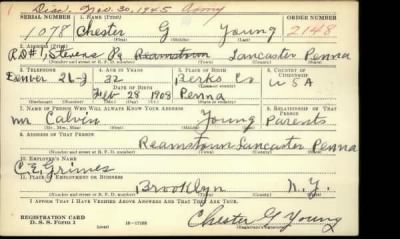 Disc. Nov. 30, 1945 Army
SERIAL NUMBER 1. NAME (Print) ORDER NUMBER
1078 Chester G Young 2148
(First) (Middle) (Last)
2. ADDRESS (Print)
R.D #1, Stevens Pa Reamstown Lancaster Penna
(Number and street or R. F. D. number) (Town) (County) (State)
3. TELEPHONE 4. AGE IN YEARS 5. PLACE OF BIRTH 6. COUNTRY OF CITIZENSHIP
Denver 21-J 32 Berks Co U S A
DATE OF BIRTH
Feb 28 1908 Penna
7. NAME OF PERSON WHO WILL ALWAYS KNOW YOUR ADDRESS 8. RELATIONSHIP OF THAT PERSON
Mr Calvin Young Parents
(Mr., Mrs., Miss) (First) (Middle) (Last)
9. ADDRESS OF THAT PERSON
Reamstown Lancaster Penna
(Number and street or R. F. D. number) (Town) (County) (State)
10. EMPLOYER'S NAME
C. E. Grimes
11. PLACE OF EMPLOYMENT OR BUSINESS
Brooklyn N. Y.
(Number and street or R. F. D. number) (Town) (County) (State)
I AFFIRM THAT I HAVE VERIFIED ABOVE ANSWERS AND THAT THEY ARE TRUE.
REGISTRATION CARD
D. S. S. Form 1
Chester G Young